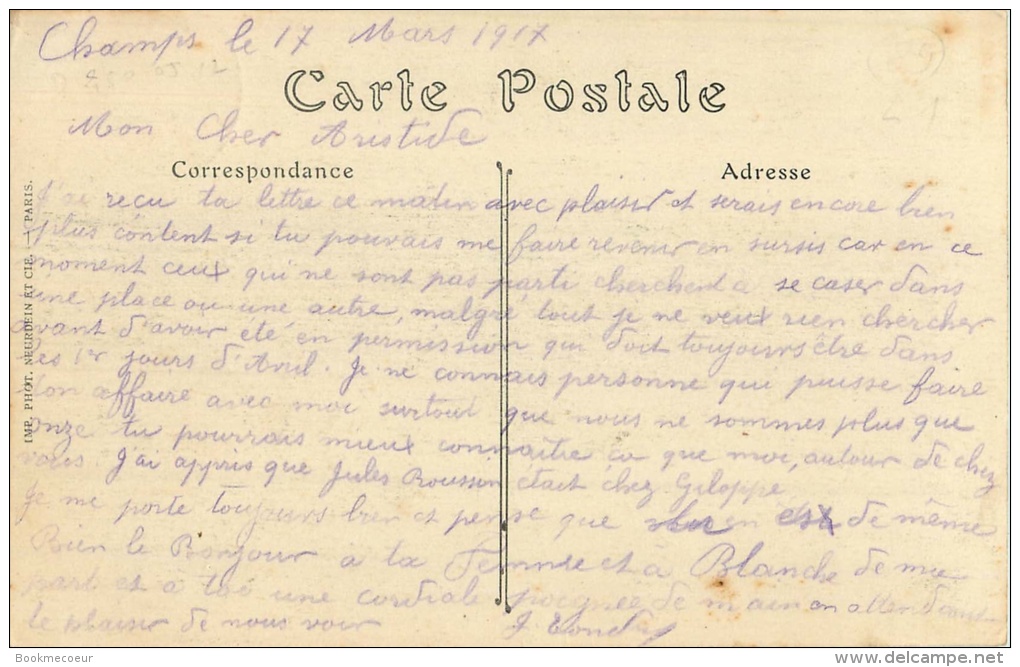 Champs le 17 Mars 1917
Carte Postale
Mon Cher Aristide
Correspondance
Adresse
J'ai recu ta lettre ce matin avec plaisir et serais encore bien
plus content si tu pouvais me faire revenir en sursis car en ce
moment ceux qui ne sont pas parti cherchent a se caser dans
une place ou une autre, malgré tout je ne veux rien chercher
avant d'avoir été en permission qui doit toujours être dans
les 1er jours d'Avril. Je ne connais personne qui puisse faire
ton affaire avec moi surtout que nous ne sommes plus que
onze tu pourrais mieux connaître ça que moi, autour de chez
vous. J'ai appris que Jules Roussin était chez Giloppe
Je me porte toujours bien et pense que en de même
Bien le Bonjour a ta Femme et à Blanche de ma
part et à toi une cordiale poignee de main en attendant
le plaisir de nous voir
IMP. PHOT. NEURDEIN ET CIE. — PARIS.
Bookmecoeur
www.delcampe.net